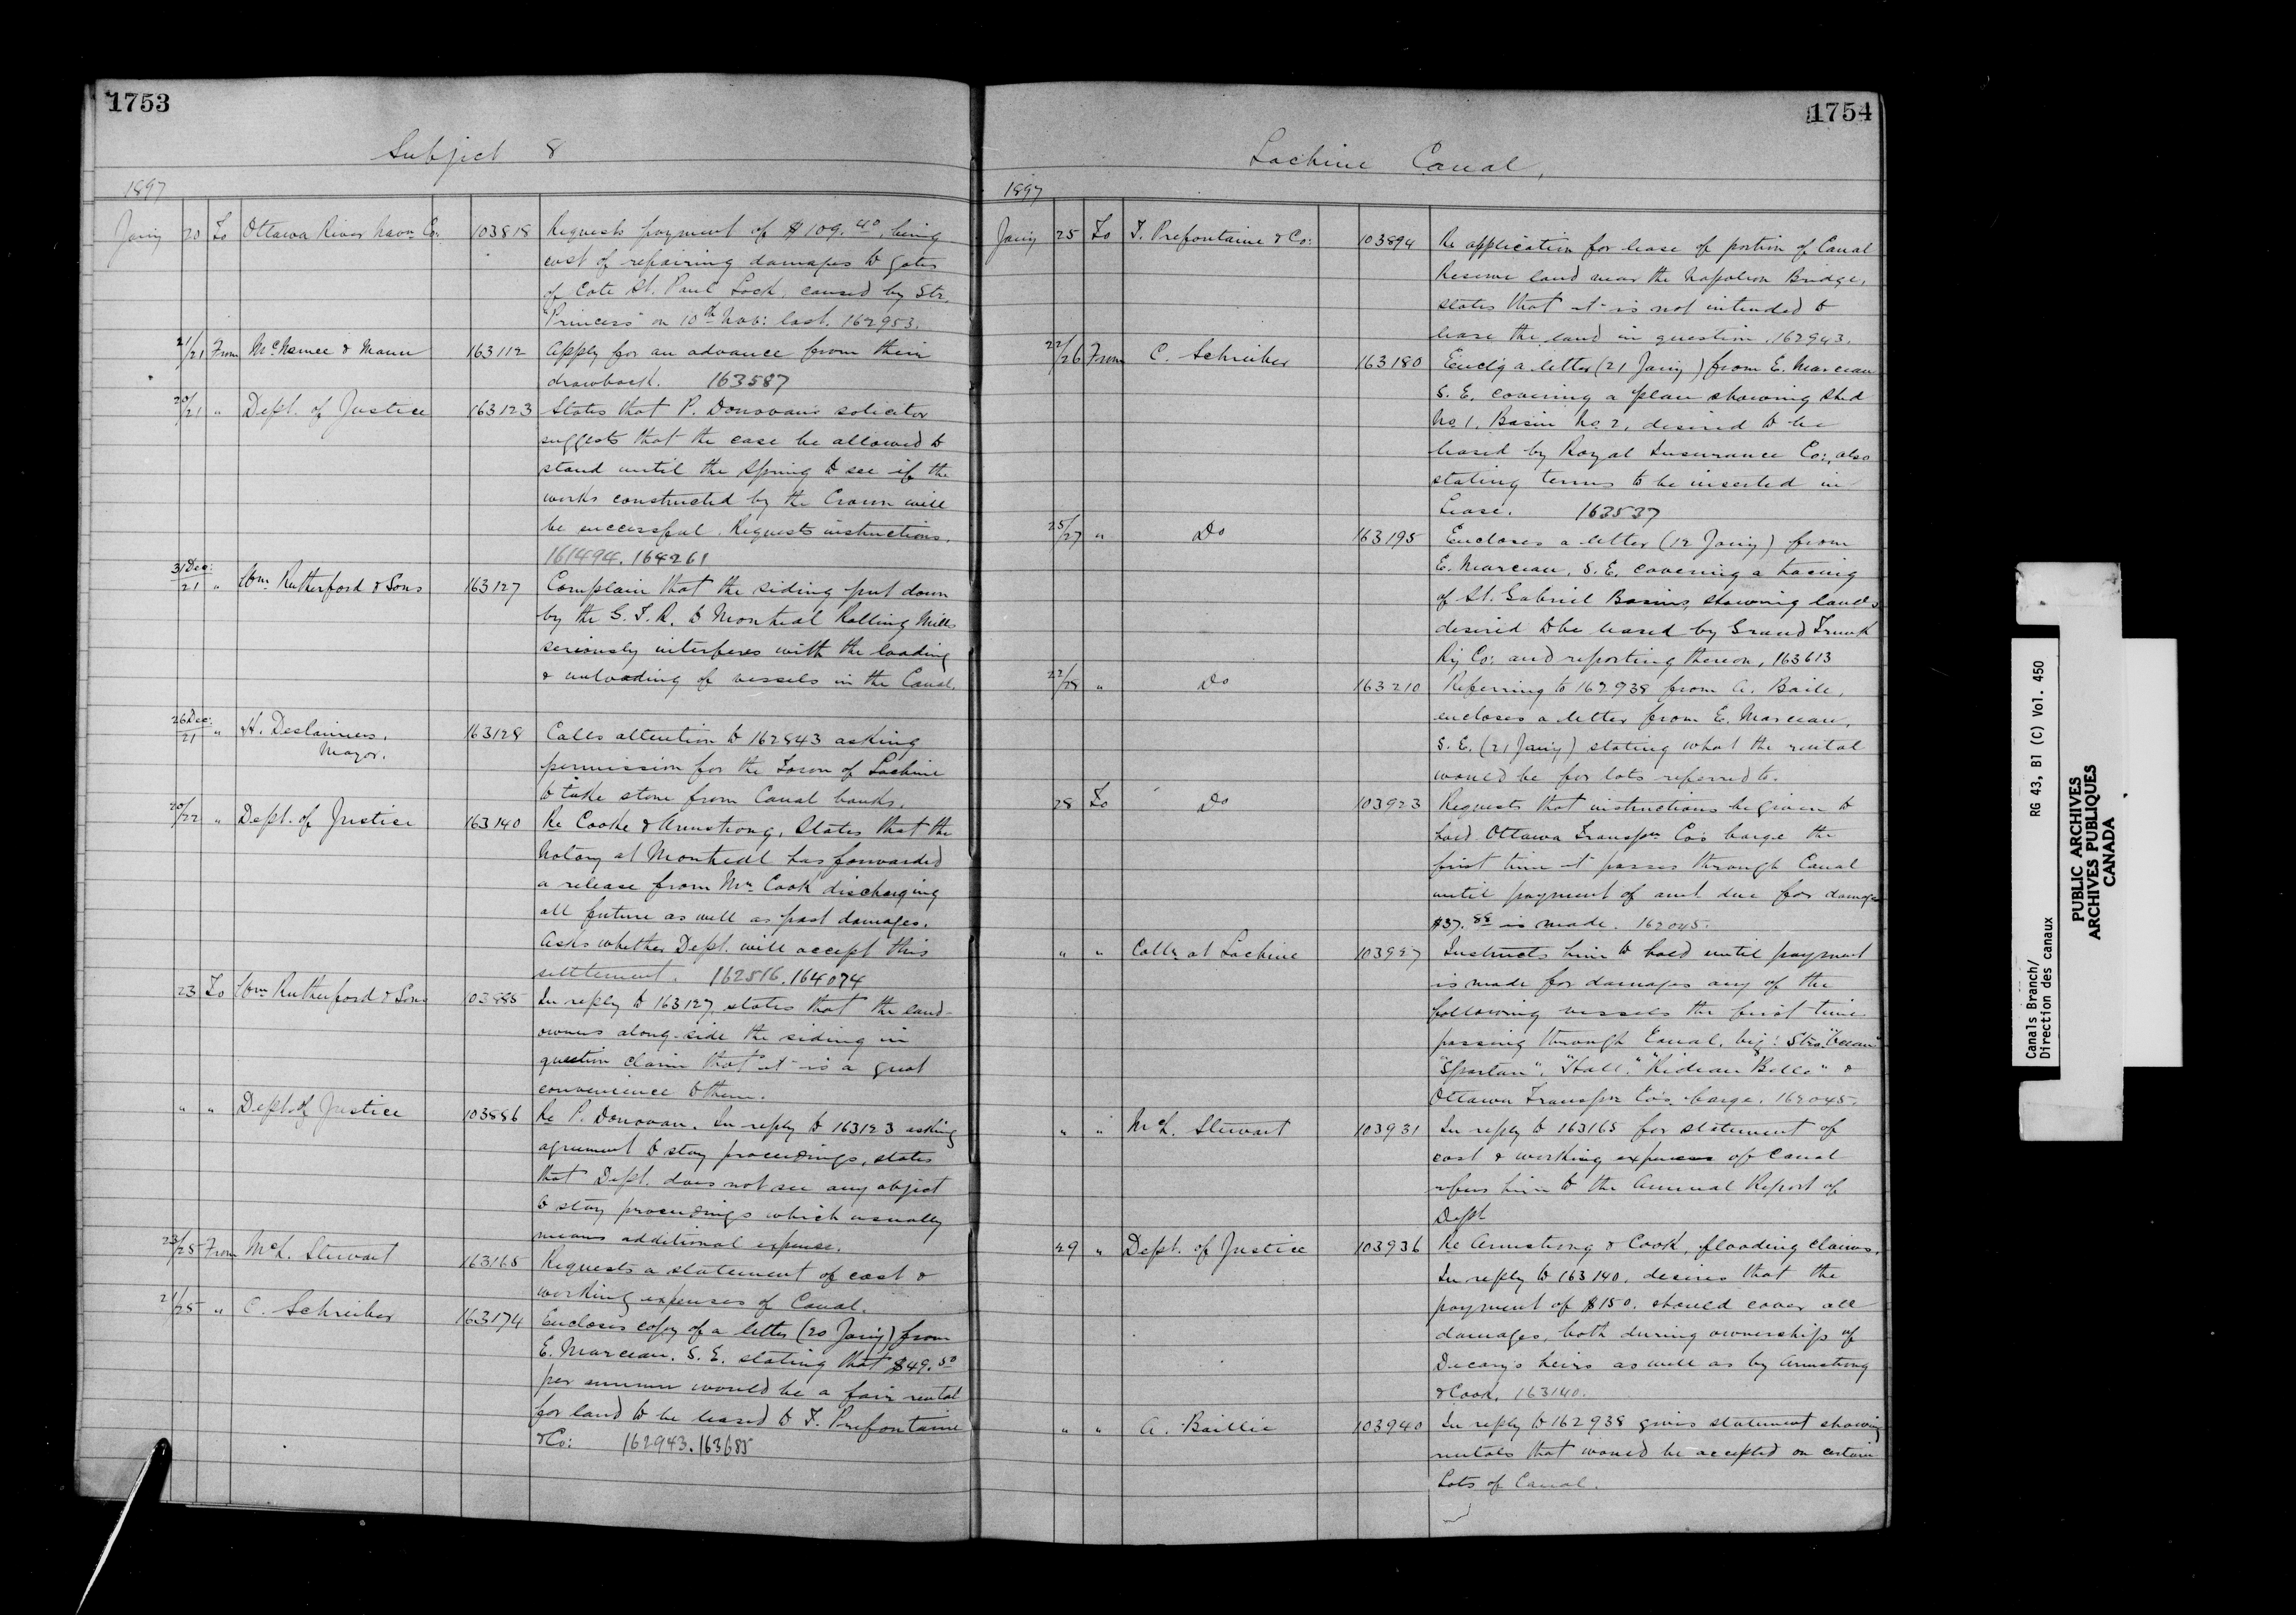 1753
Subject 8
1897
Jany 20 To Ottawa River Navn. Co. 103818 Requests payment of $109.40, being
cost of repairing damages to gates
of Cote St. Paul Lock, caused by Str.
"Princess" on 10th Nov: last. 162953.
21/21 From McNamee & Mann 163112 Apply for an advance from their
drawback. 163587
20/21 " Dept. of Justice 163123 States that P. Donovan's solicitor
suggests that the case be allowed to
stand until the Spring to see if the
works constructed by the Crown will
be successful. Requests instructions.
161494. 164261
31 Dec:/21 " Wm. Rutherford & Sons 163127 Complain that the siding put down
by the G. T. R. to Montreal Rolling Mills
seriously interferes with the loading
& unloading of vessels in the Canal.
26 Dec:/21 " H. Deslauriers. 163128 Calls attention to 162843 asking
Mayor.
permission for the Town of Lachine
to take stone from Canal banks.
20/22 " Dept. of Justice 163140 Re Cooke & Armstrong, States that the
Notary at Montreal has forwarded
a release from Mr. Cook discharging
all future as well as past damages.
Asks whether Dept. will accept this
settlement. 162516. 164074
23 To Wm. Rutherford & Sons 103885 In reply to 163127, states that the land-
owners along-side the siding in
question claim that it is a great
convenience to them.
" " Dept. of Justice 103886 Re P. Donovan. In reply to 163123 asking
agreement to stay proceedings, states
that Dept. does not see any object
to stay proceedings which usually
means additional expense.
23/25 From McL. Stewart 163165 Requests a statement of cost &
working expenses of Canal.
21/25 " C. Schreiber 163174 Encloses copy of a letter (20 Jany) from
E. Marceau. S. E. stating that $49.50
per annum would be a fair rental
for land to be leased to T. Prefontaine
& Co: 162943. 163685
1754
Lachine Canal,
1897
Jany 25 To T. Prefontaine & Co: 103894 Re application for lease of portion of Canal
Reserve land near the Napoleon Bridge,
states that it is not intended to
lease the land in question. 162943.
22/26 From C. Schreiber 163180 Enclg a letter (21 Jany) from E. Marceau
S. E. covering a plan showing Shed
No. 1. Basin No. 2, desired to be
leased by Royal Insurance Co:, also
stating terms to be inserted in
Lease. 163537
25/27 " Do 163195 Encloses a letter (12 Jany) from
E. Marceau, S. E. covering a tracing
of St. Gabriel Basins, showing lands
desired to be leased by Grand Trunk
Ry Co: and reporting thereon, 163613
22/28 " Do 163210 Referring to 162938 from A. Baile,
encloses a letter from E. Marceau,
S. E. (21 Jany) stating what the rental
would be for lots referred to.
28 To Do 103923 Requests that instructions be given to
hold Ottawa Transpn Co's barge the
first time it passes through Canal
until payment of amt due for damage
$37.88 is made. 162045.
" " Collr at Lachine 103927 Instructs him to hold until payment
is made for damages any of the
following vessels the first time
passing through Canal, viz: Strs. "Ocean"
"Spartan", "Hall", "Rideau Belle" &
Ottawa Transpn Co's barge. 162045.
" " McL. Stewart 103931 In reply to 163165 for statement of
cost & working expenses of Canal
refers him to the Annual Report of
Dept
29 " Dept. of Justice 103936 Re Armstrong & Cook, flooding claims.
In reply to 163140, desires that the
payment of $150. should cover all
damages, both during ownership of
Decary's heirs as well as by Armstrong
& Cook. 163140.
" " A. Baillie 103940 In reply to 162938 gives statement showing
rentals that would be accepted on certain
Lots of Canal.
Canals Branch/ RG 43, B1 (C) Vol. 450
Direction des canaux
PUBLIC ARCHIVES
ARCHIVES PUBLIQUES
CANADA